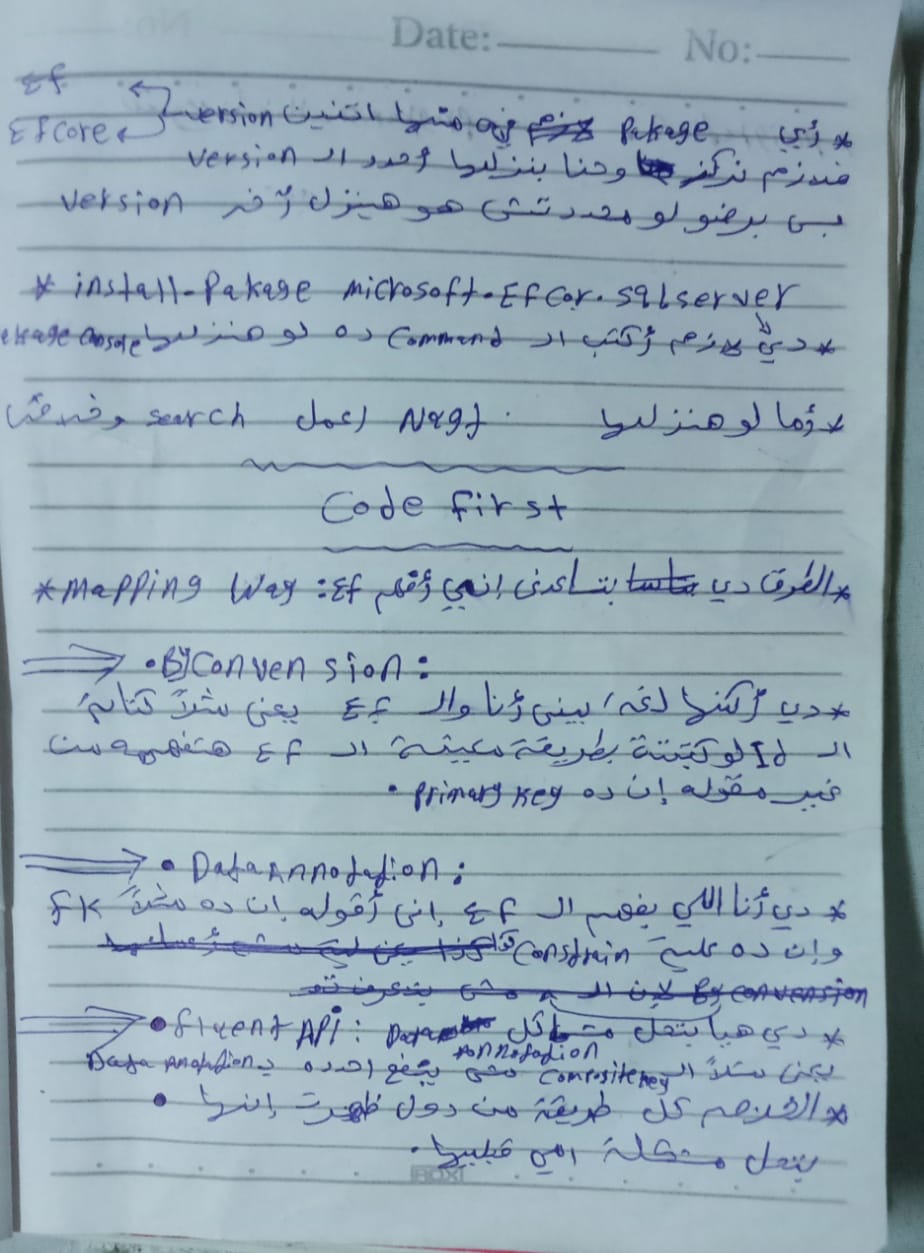 Date: No:
* أي Pakage فيه منها اتنين version Ef
EfCore
فلازم نركز وحنا بنزلها أحدد الـ version
بس برضو لو محددتش هو هينزل آخر version
* install-Pakage microsoft.EfCor.sqlserver
* دي لازم أكتب الـ Command ده لو هنزلها akage Console
* أما لو هنزلها Nagt اعمل search
Code first
* الطرق دي بتساعدنى إني أفهم Ef: mapping Way *
• By Convension:
* دي أكنها لغة بيني أنا والـ Ef يعنى مثلاً كتابة
الـ Id لو كتبتة بطريقة معينة الـ Ef هتفهمه من
غير مقوله إن ده Primary Key •
• Data Annotation:
* دي أنا اللي بفهم الـ Ef إنى أقوله إن ده مثلاً fk
وإن ده عليه Constrain
لإن الـ By convension مش بتعرف
• fluent API:
* دي هيا بتحل مشاكل Data Annotation
يعنى مثلاً الـ Composite key مش ينفع احدده بـ Data Anotation
* الخلاصه كل طريقة من دول ظهرت إنها •
بتحل مشكلة الي قبليها.
ROXI